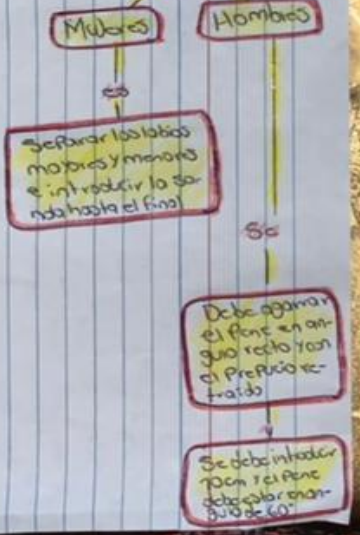 Mujeres
Hombres
es
Separar los labios
mayores y menores
e introducir la so-
nda hasta el final
Se
Debe agarrar
el pene en an-
gulo recto y con
el prepucio re-
traido
Se debe introducir
10cm y el pene
debe estar en an-
gulo de 60°